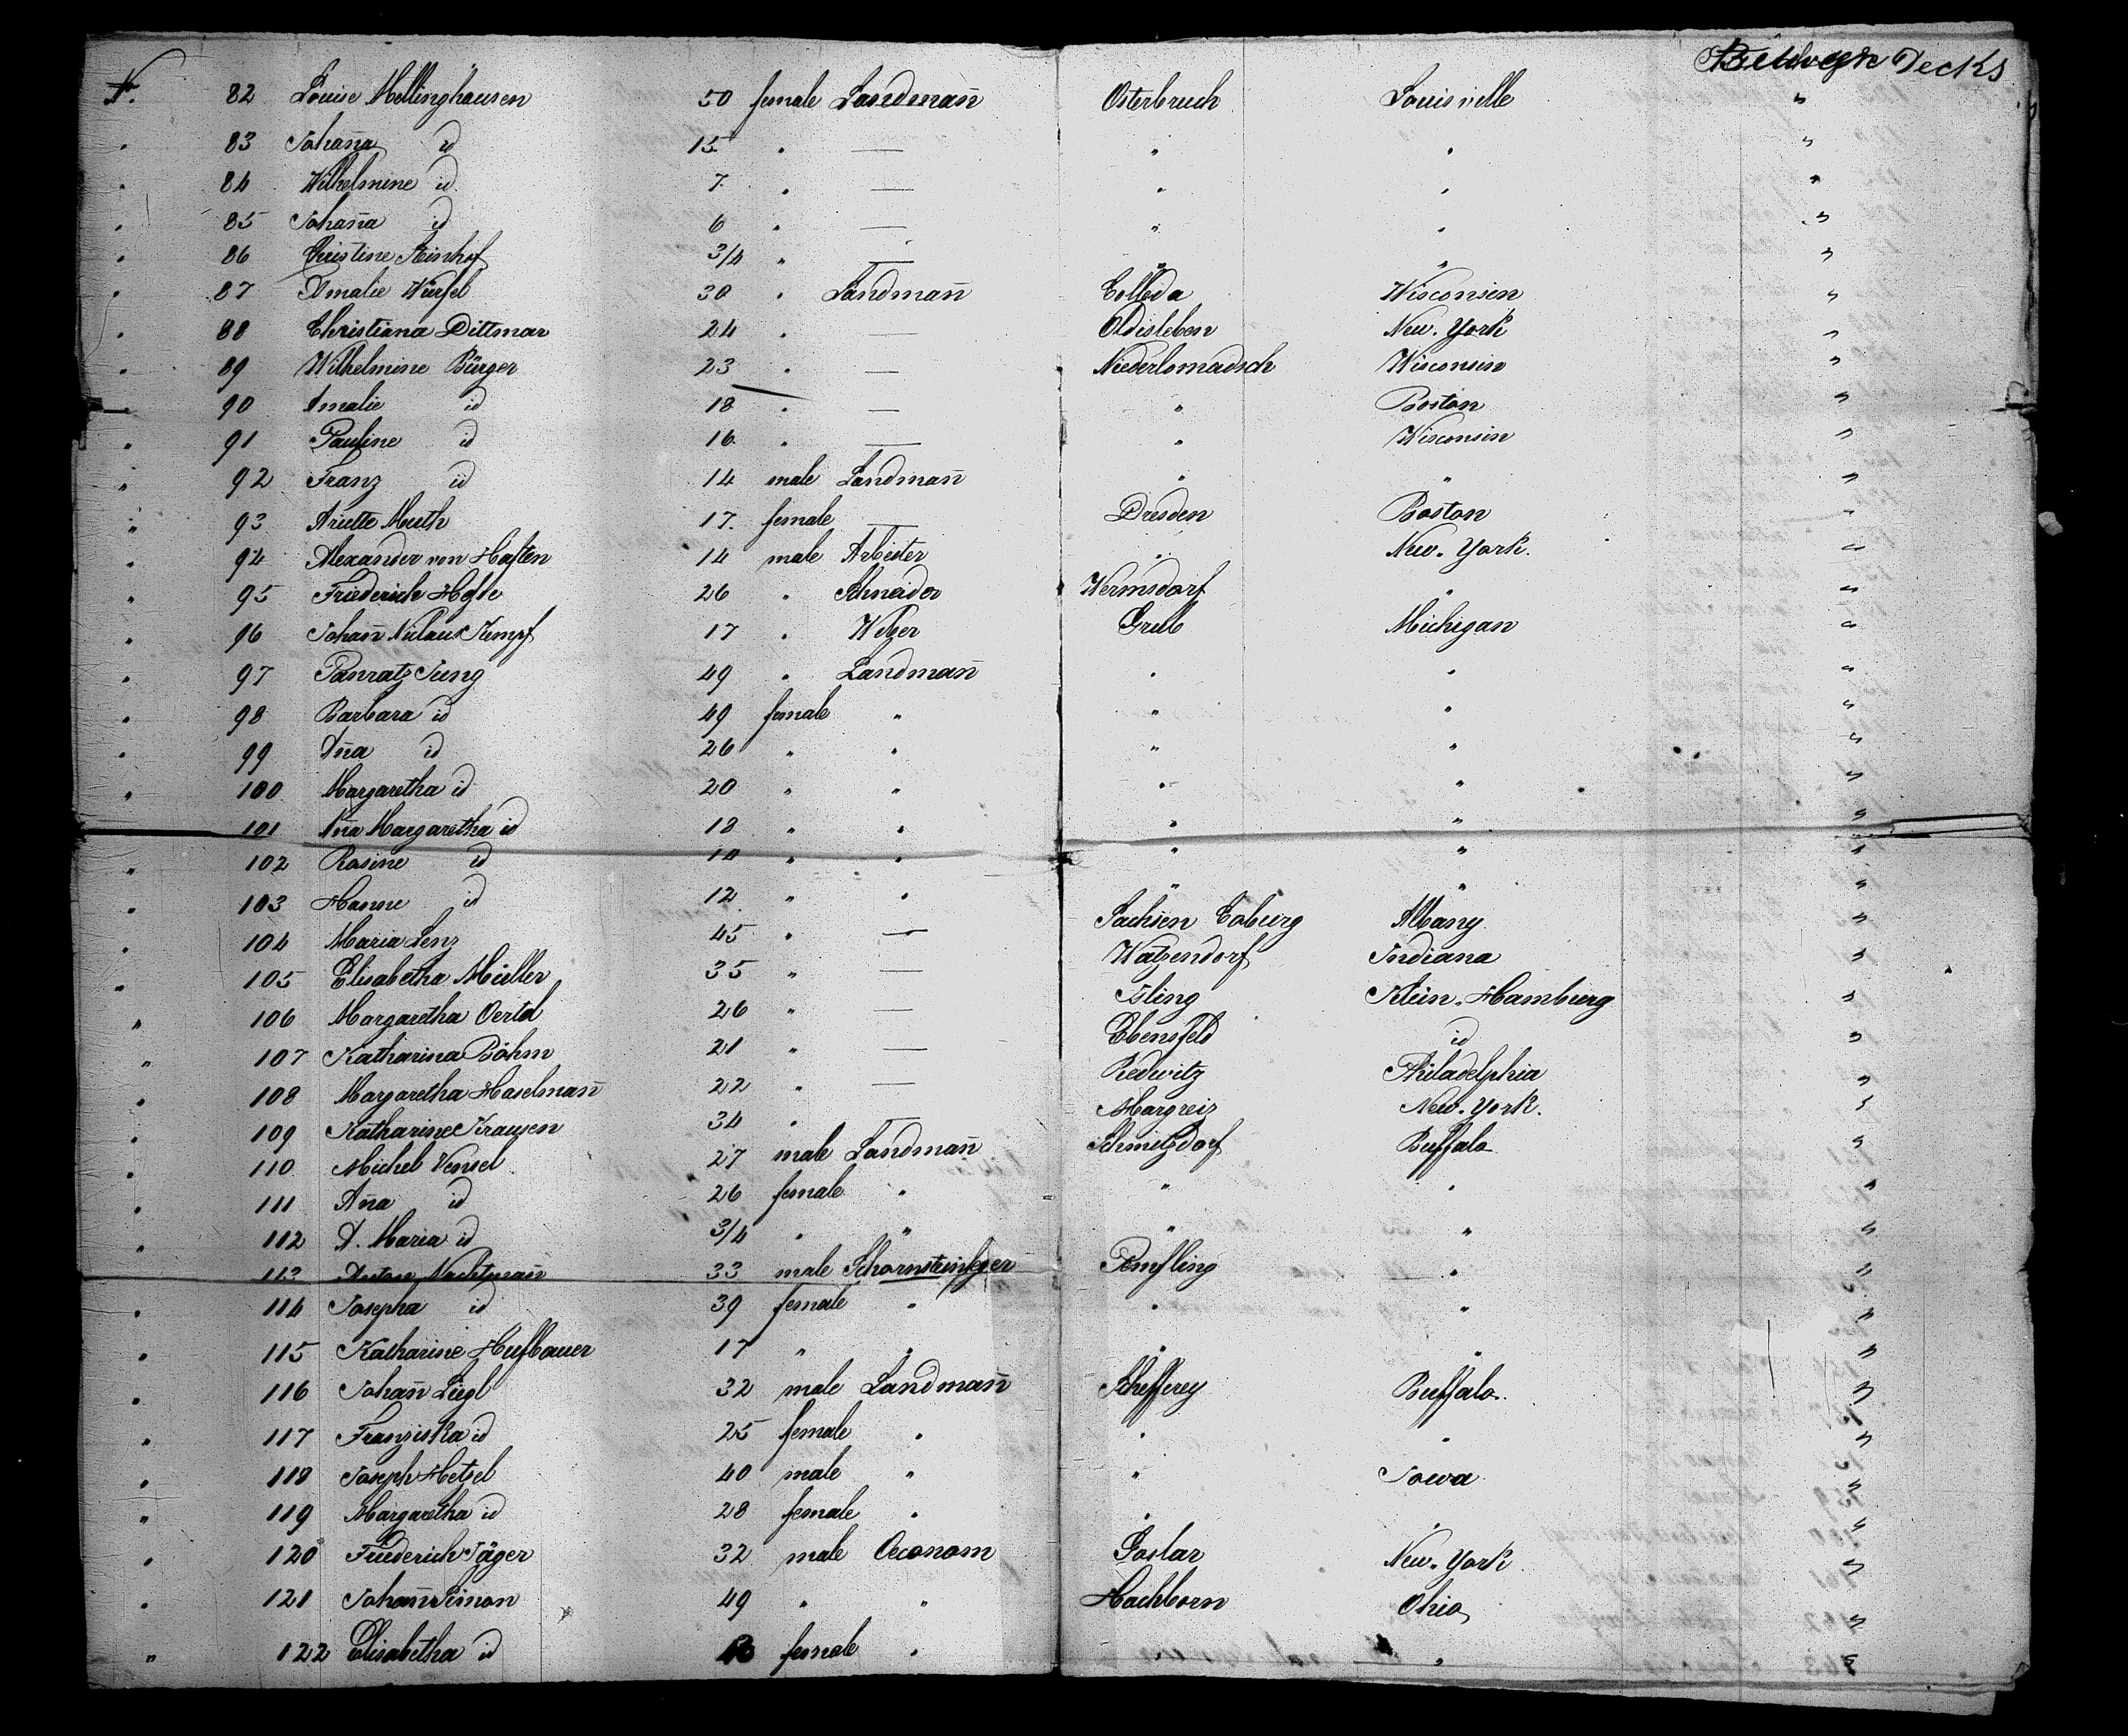 Between Decks
No. 82 Louise Mellinghausen 50 female Landmann̄ Osterbruch Louisville "
" 83 Johan̄a id 15 " — " " "
" 84 Wilhelmine id 7 " — " " "
" 85 Johan̄a id 6 " — " " "
" 86 Christine Steinhof 3/4 " — " " "
" 87 Amalie Würfel 30 " Landman̄ Colleda Wisconsin "
" 88 Christiana Dittmar 24 " — Oldisleben New-York "
" 89 Wilhelmine Bürger 23 " — Niederlomadsch Wisconsin "
" 90 Amalie id 18 " — " Boston "
" 91 Pauline id 16 " — " Wisconsin "
" 92 Franz id 14 male Landman̄ " " "
" 93 Muth 17 female — Dresden Boston "
" 94 Alexander von Haften 14 male Arbeiter " New-York "
" 95 Friederich 26 " Schneider Wermsdorf " "
" 96 Johan̄ Kempf 17 " Grub Michigan "
" 97 Panratz Jung 49 " Landman̄ " " "
" 98 Barbara id 49 female " " " "
" 99 An̄a id 26 " " " " "
" 100 Margaretha id 20 " " " " "
101 An̄a Margaretha id 18 " " " " "
" 102 Rosine id 14 " " " " "
" 103 Hanne id 12 " " " " "
" 104 Maria Lenz 45 " — Sachsen Coburg Albany "
" 105 Elisabetha Müller 35 " — Watzendorf Indiana "
" 106 Margaretha Oertel 26 " — Isling Klein-Hamburg "
" 107 Katharina Böhm 21 " — Ebensfeld id "
" 108 Margaretha Haselman̄ 22 " — Redwitz Philadelphia "
" 109 Katharine Krausen 34 " — Margreiz New-York. "
" 110 Michel Wensel 27 male Landman̄ Schmitzdorf Buffalo "
" 111 An̄a id 26 female " " " "
" 112 A. Maria id 3/4 " " " " "
113 Anton Nachtman̄ 33 male Schornsteinfeger Pemfling " "
" 114 Josepha id 39 female " " " "
" 115 Katharine Hufbauer 17 " " " " "
" 116 Johan̄ Liegl 32 male Landman̄ Schefferey Buffalo. "
" 117 Franziska id 25 female " " " "
" 118 Joseph Hetzel 40 male " " Iowa "
" 119 Margaretha id 28 female " " "
" 120 Friederich Jäger 32 male Oeconom Goslar New-York "
" 121 Johan̄ Simon 49 " " Hachborn Ohio "
" 122 Elisabetha id female " " " "